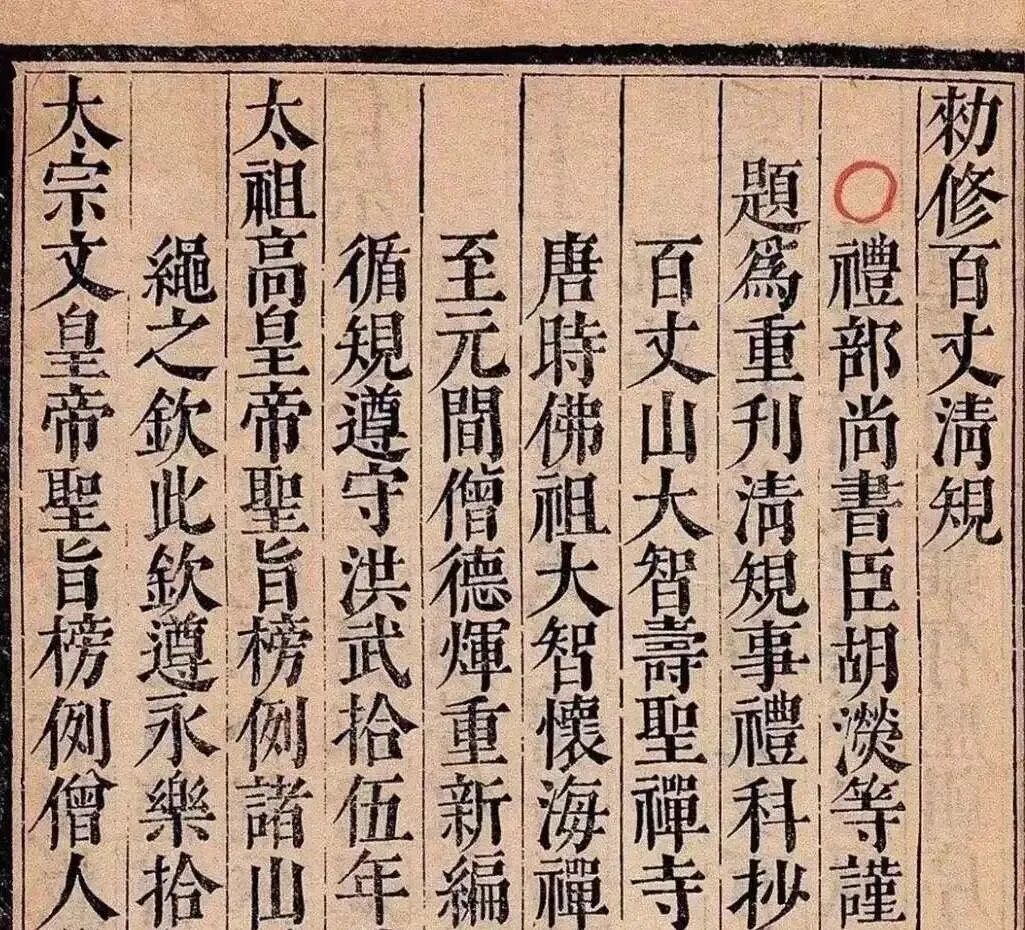 勑修百丈淸規
禮部尚書臣胡濙等謹
題爲重刋淸規事禮科抄
百丈山大智壽聖禪寺
唐時佛祖大智懷海禪
至元間僧德煇重新編
循規遵守洪武拾伍年
太祖高皇帝聖旨榜例諸山
繩之欽此欽遵永樂拾
太宗文皇帝聖旨榜例僧人